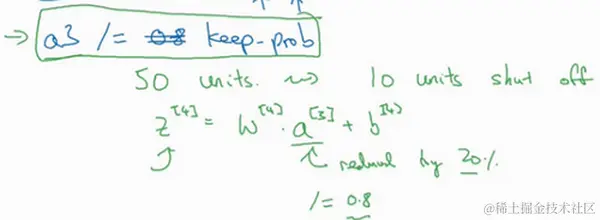 → a3 /= 0.8 keep-prob
50 units. ⇝ 10 units shut off
z^[4] = W^[4] · a^[3] + b^[4]
reduced by 20%.
/= 0.8
@稀土掘金技术社区